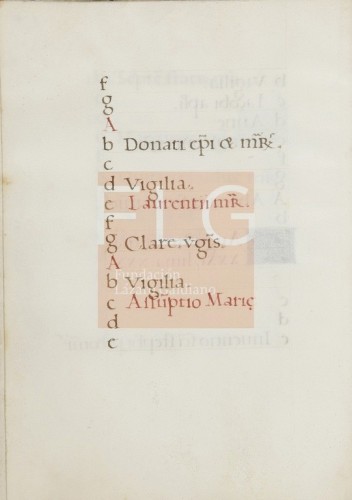 f
g
A
b Donati ep̄i & mr̄.
c
d Vigilia.
e Laurentii mr̄.
f
g Clare. v̄gis̄.
A
b Vigilia
c Assūptio Marię
d
e
FLG
Fundación
Lázaro Galdiano